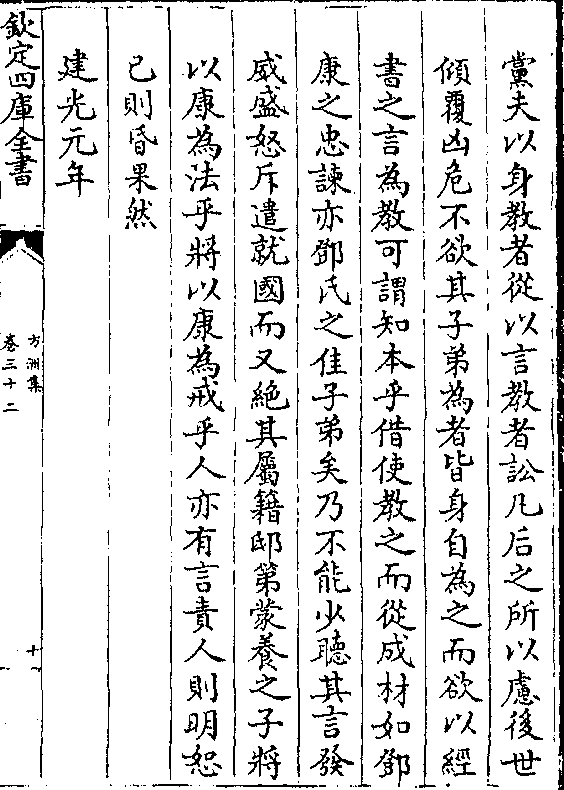 黨夫以身教者從以言教者訟凡后之所以慮後世
傾覆凶危不欲其子弟為者皆身自為之而欲以經
書之言為教可謂知本乎借使教之而從成材如鄧
康之忠諫亦鄧氏之佳子弟矣乃不能少聽其言發
威盛怒斥遣就國而又絶其屬籍邸第蒙養之子將
以康為法乎將以康為戒乎人亦有言責人則明恕
己則昏果然
建光元年
欽定四庫全書
方洲集
卷三十二
十